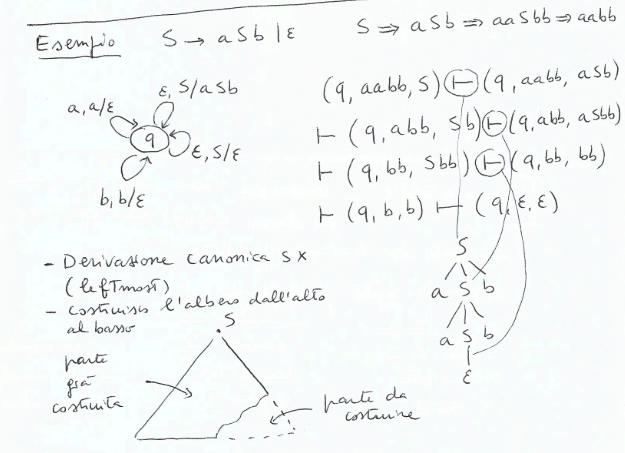 Esempio S → aSb | ε S ⇒ aSb ⇒ aaSbb ⇒ aabb
(q, aabb, S) ⊢ (q, aabb, aSb)
⊢ (q, abb, Sb) ⊢ (q, abb, aSbb)
⊢ (q, bb, Sbb) ⊢ (q, bb, bb)
⊢ (q, b, b) ⊢ (q, ε, ε)
ε, S/aSb
a, a/ε
q
ε, S/ε
b, b/ε
- Derivazione canonica sx
(leftmost)
- costruisco l'albero dall'alto
al basso
S
parte
già
costruita
parte da
costruire
S
a S b
a S b
ε